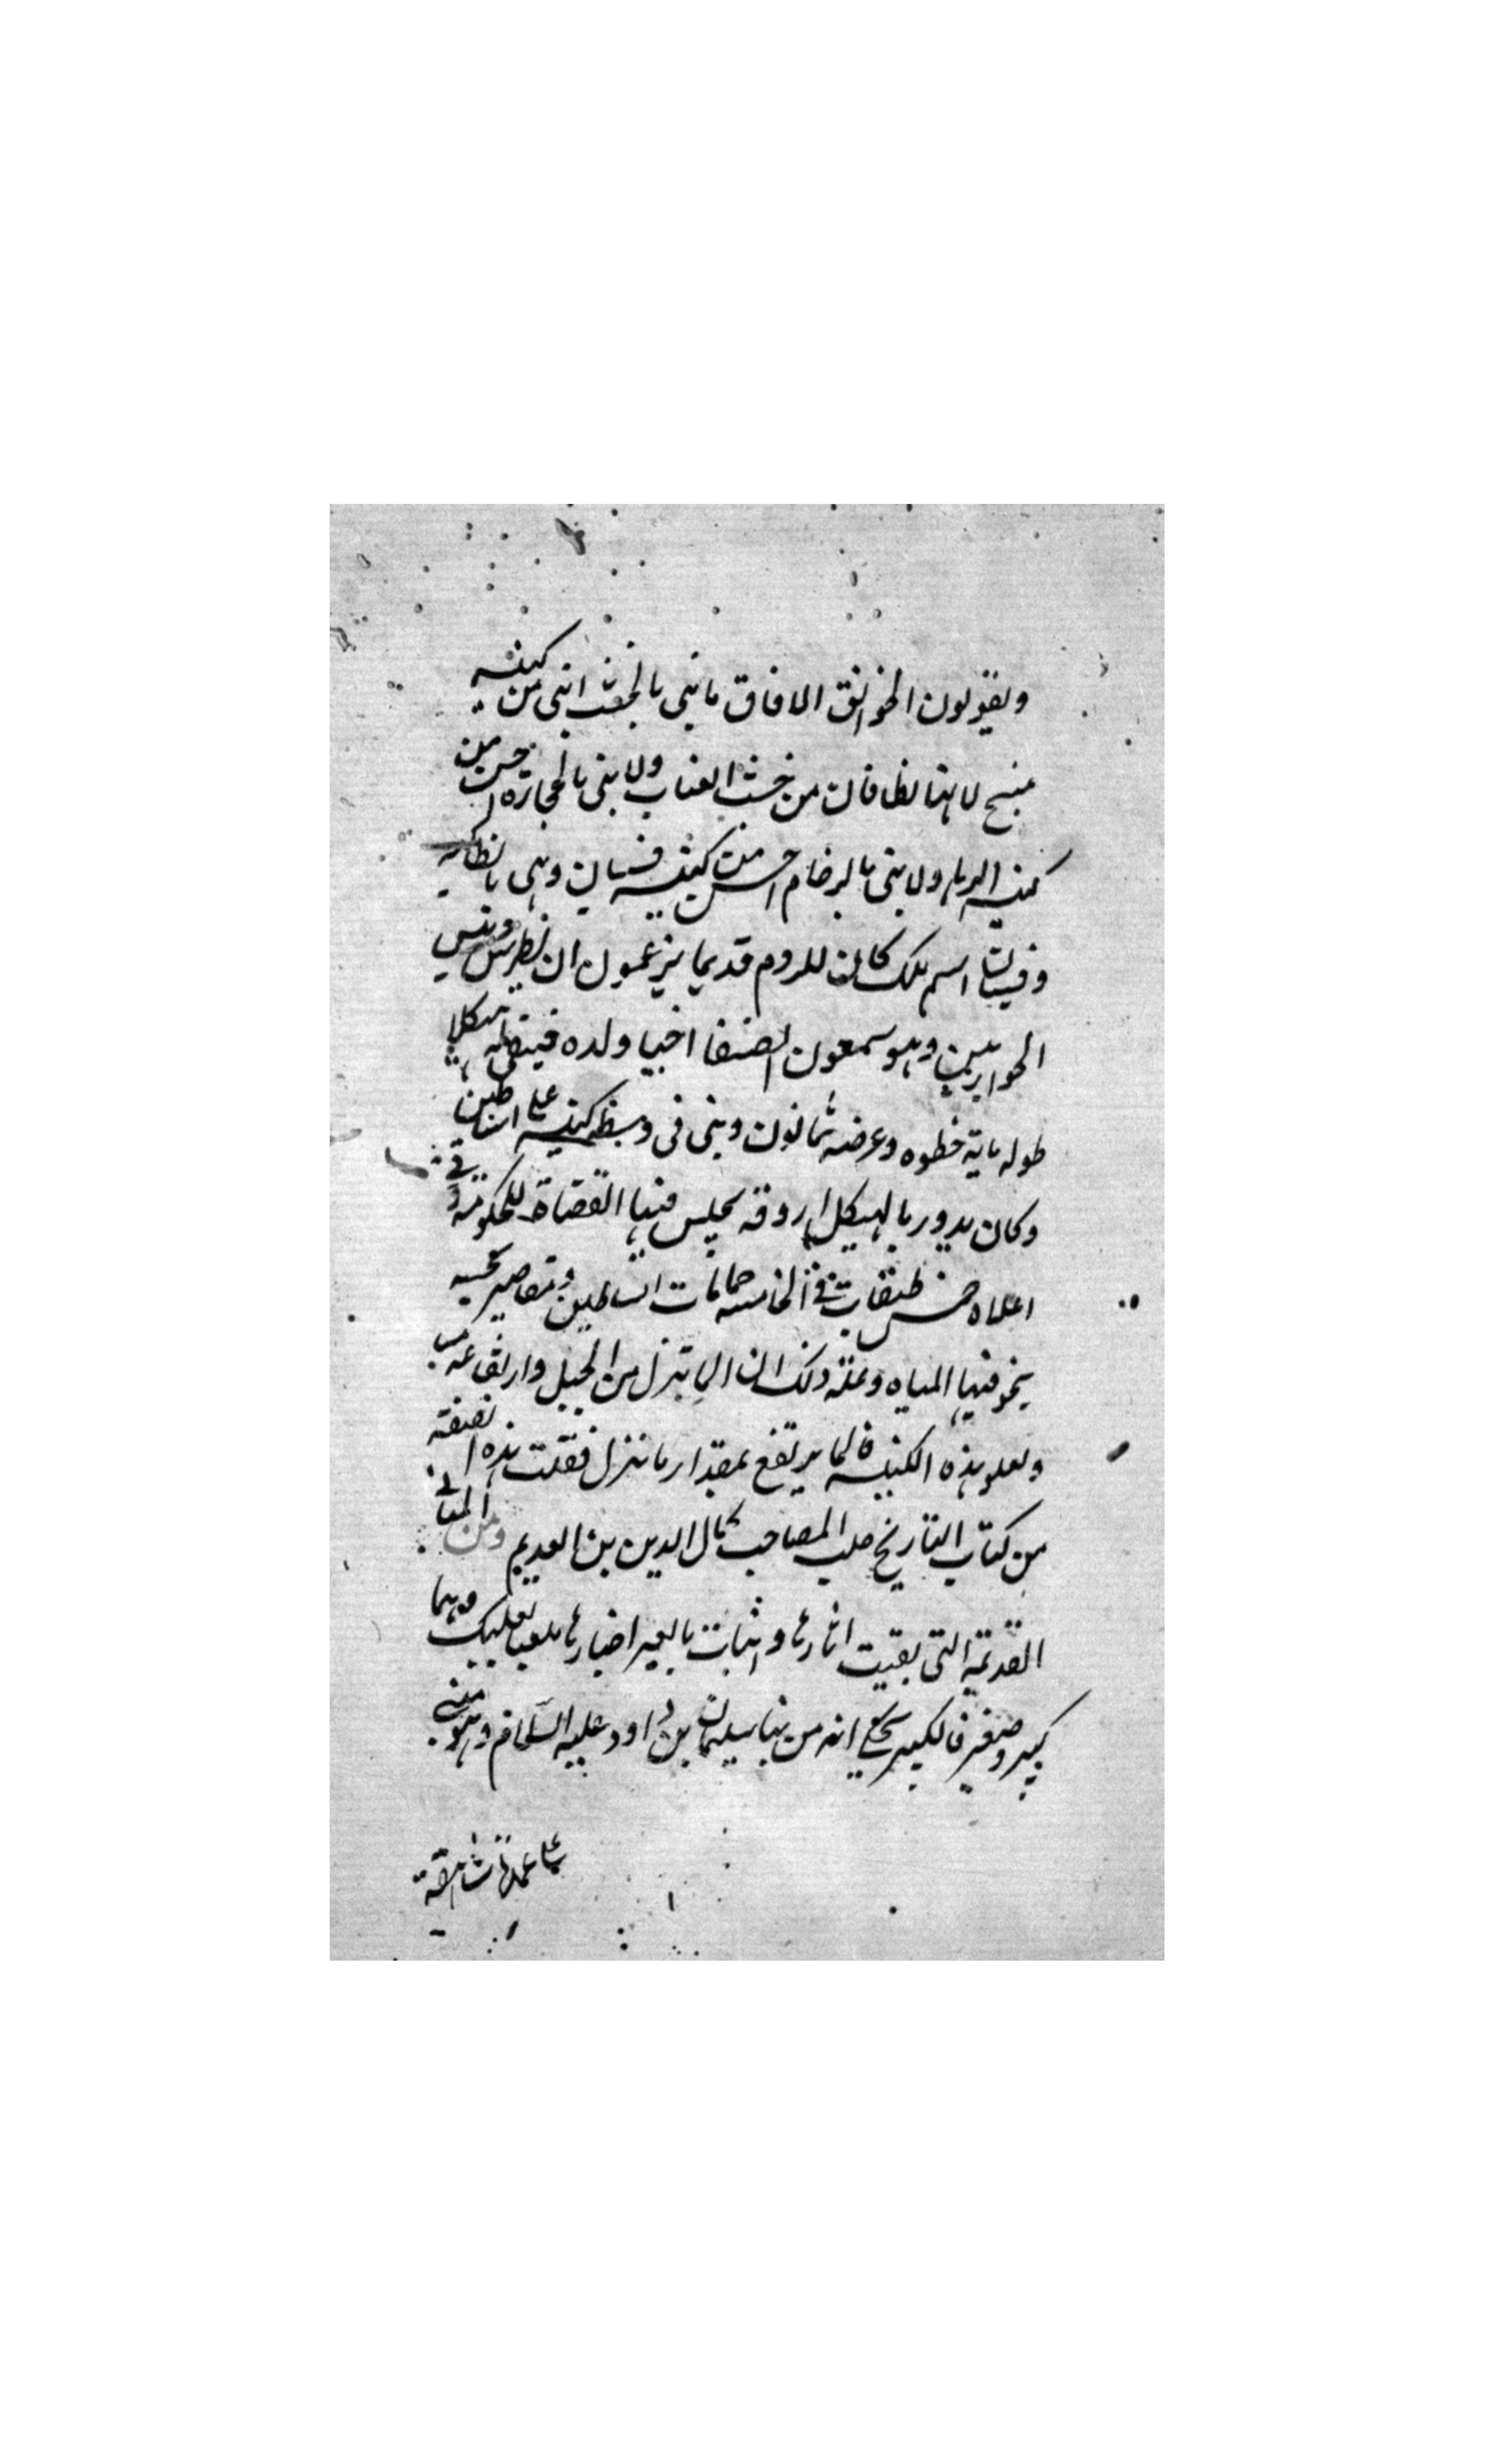 ويقولون الخوانق الافاق ما بنى بالخشب ابنى من كنيسة
منبج لانها نطاقات من خشب العناب ولا بنى بالحجارة احسن من
كنيسة الرها ولا بنى بالرخام احسن من كنيسة قسيان وهى بانطاكية
وقسيان اسم ملك كان للروم قديما يزعمون ان بطرس رئيس
الحواريين وهو سمعون الصفا احيا ولده هيكل
طوله ماية خطوه وعرضه ثمانون وبنى فى وسطه كنيسة على اساطين
وكان يدور بالهيكل اروقة يجلس فيها القضاة للحكومة فى
اعلاه خمس طبقات فى الخامسة حمامات وبساتين ومقاصير حسنة
يخر فيها المياه وعلة ذلك ان الما ينزل من الجبل
ويعلو هذه الكنيسة فالما يرتفع بمقدار ما نزل نقلت هذه القصة
من كتاب التاريخ حلب الصاحب كمال الدين بن العديم ومن المبانى
القديمة التى بقيت اثارها اخبارها ملعبا بعلبك وهما
كبير وصغير فالكبير يحكى انه من بنا سليمان بن داود عليه السلام وهو مبنى
على عمد شاهقة